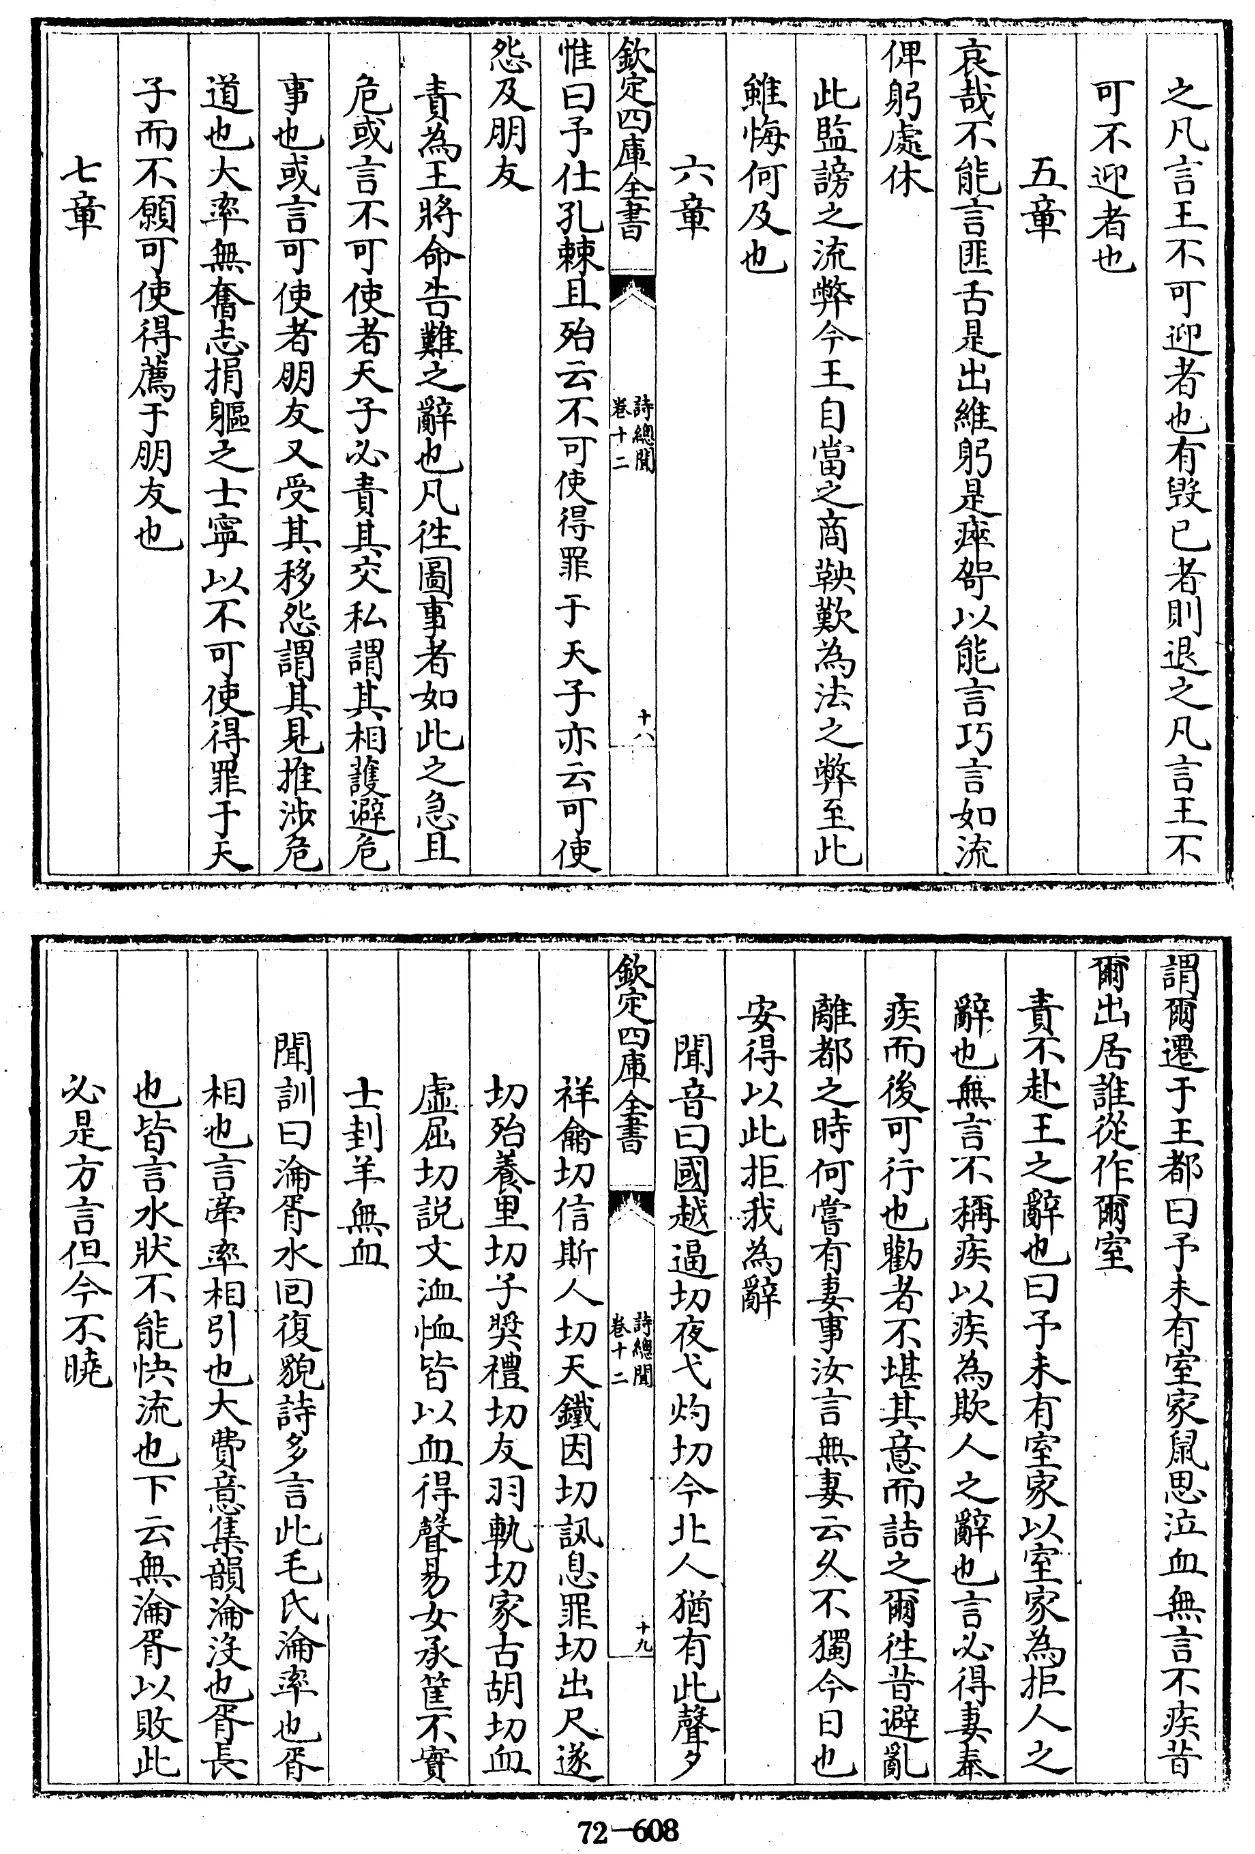 之凡言王不可迎者也有毀已者則退之凡言王不
可不迎者也
五章
哀哉不能言匪舌是出維躬是瘁哿以能言巧言如流
俾躬處休
此監謗之流弊今王自當之商鞅歎為法之弊至此
雖悔何及也
六章
欽定四庫全書
詩總聞
卷十二
十八
惟曰予仕孔棘且殆云不可使得罪于天子亦云可使
怨及朋友
責為王將命告難之辭也凡徃圖事者如此之急且
危或言不可使者天子必責其交私謂其相護避危
事也或言可使者朋友又受其移怨謂其見推涉危
道也大率無奮志捐軀之士寧以不可使得罪于天
子而不願可使得薦于朋友也
七章
謂爾遷于王都曰予未有室家鼠思泣血無言不疾昔
爾出居誰從作爾室
責不赴王之辭也曰予未有室家以室家為拒人之
辭也無言不稱疾以疾為欺人之辭也言必得妻奉
疾而後可行也勸者不堪其意而詰之爾徃昔避亂
離都之時何嘗有妻事汝言無妻云久不獨今日也
安得以此拒我為辭
聞音曰國越逼切夜弋灼切今北人猶有此聲夕
欽定四庫全書
詩總聞
卷十二
十九
祥龠切信斯人切天鐵因切訊息罪切出尺遂
切殆養里切子奬禮切友羽軌切家古胡切血
虚屈切説文洫恤皆以血得聲易女承筐不實
士刲羊無血
聞訓曰淪胥水囘復貌詩多言此毛氏淪率也胥
相也言牽率相引也大費意集韻淪沒也胥長
也皆言水狀不能快流也下云無淪胥以敗此
必是方言但今不曉
72-608